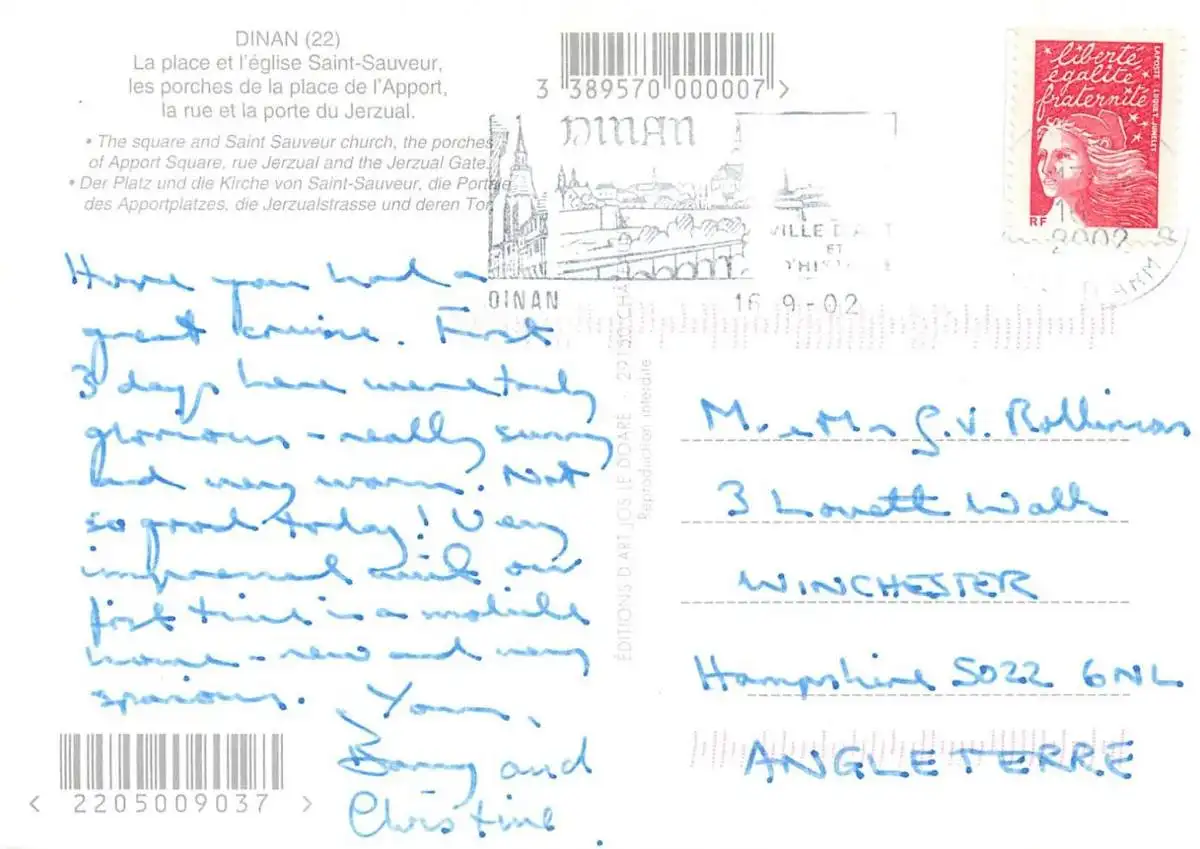 DINAN (22)
La place et l'église Saint-Sauveur,
les porches de la place de l'Apport,
la rue et la porte du Jerzual.
• The square and Saint Sauveur church, the porches
of Apport Square, rue Jerzual and the Jerzual Gate.
• Der Platz und die Kirche von Saint-Sauveur, die Portale
des Apportplatzes, die Jerzualstrasse und deren Tor.
3 389570 000007 >
DINAN
VILLE D'ART
ET
D'HISTOIRE
DINAN 16 9-02
liberté
égalité
fraternité
LAPOSTE LUQUET JUMELET
RF
2002
Hope you had a
great cruise. First
3 days here were truly
glorious - really sunny
and very warm. Not
so good today! Very
impressed with our
first time in a mobile
home - new and very
spacious. Yours,
Barry and
Christine.
ÉDITIONS D'ART JOS LE DOARÉ - 29150
Reproduction interdite
M. & M G.V. Rollinson
3 Lovett Walk
WINCHESTER
Hampshire SO22 6NL
ANGLETERRE
< 2205009037 >